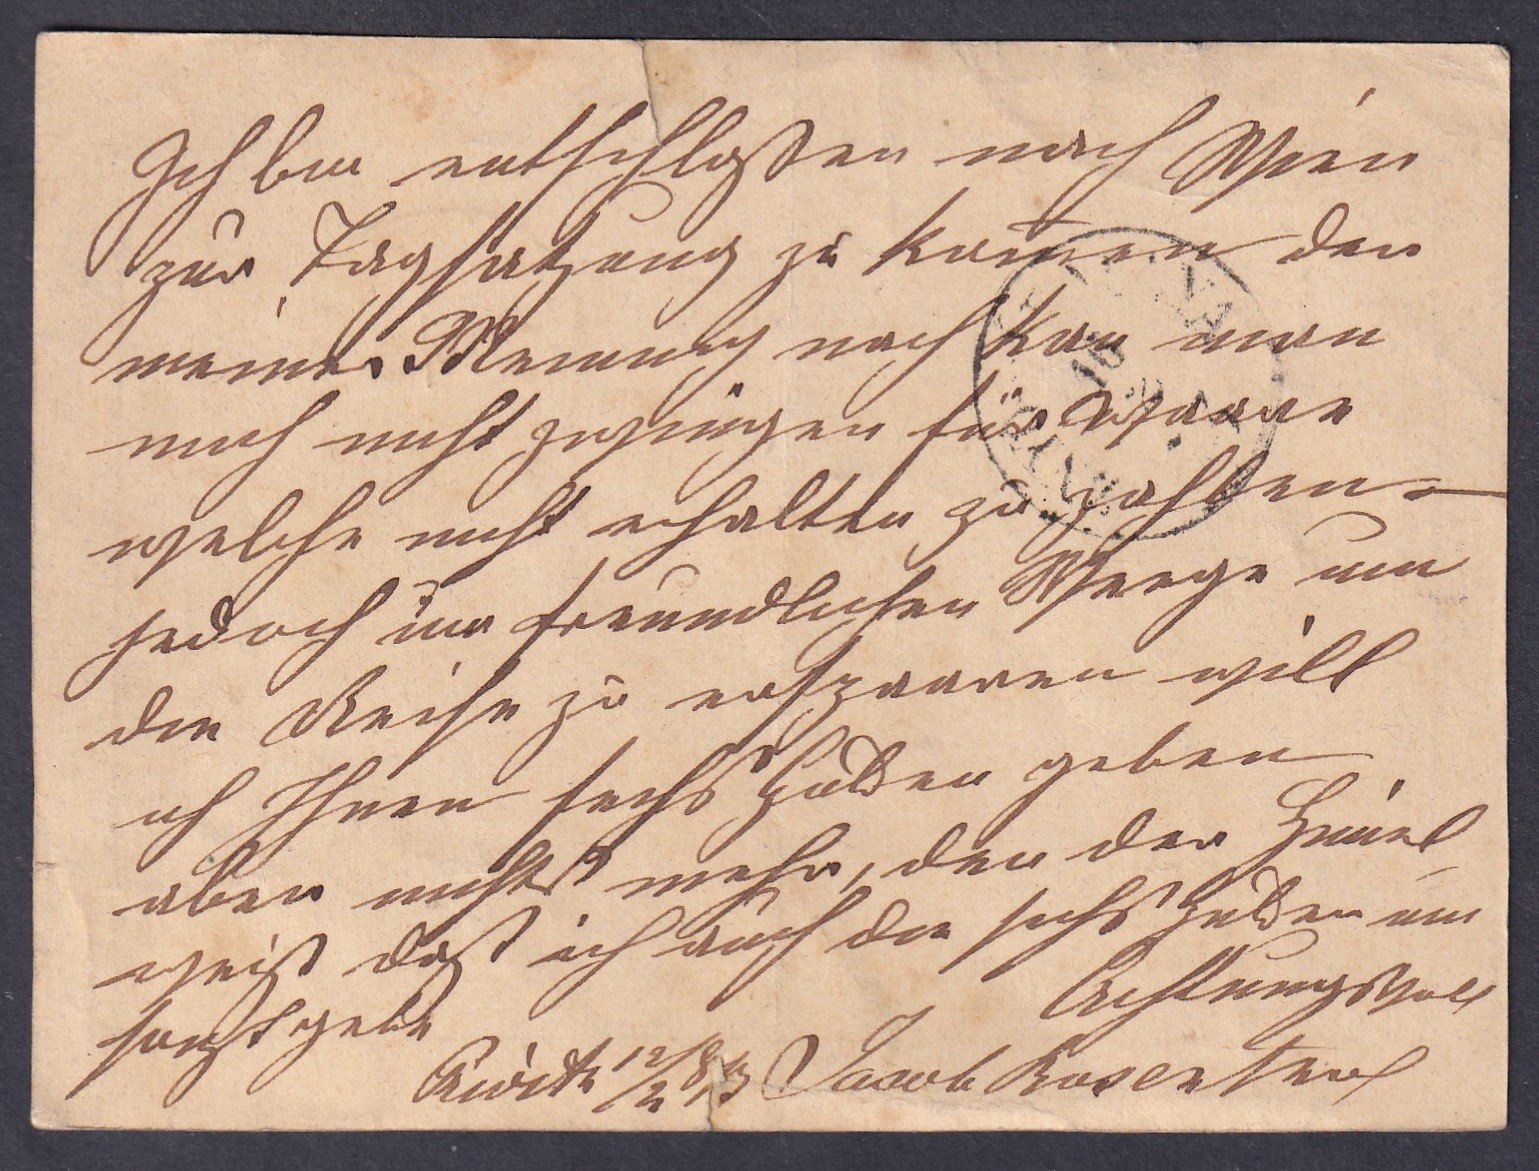 Ich bin entschloßen nach Wien
zur Tagsatzung zu kom̄en den
meiner Meinung nach kan man
mich nicht zwingen für Waare
welche nicht erhalten zu zahlen
jedoch im freundlichen Weege um
die Reise zu ersparen will
ich Ihnen sechs Gulden geben
aber nichts mehr, den der Him̄el
weiß daß ich auch die sechs Gulden um
sonst gebe
Achtungsvoll
12/2 83 Jacob